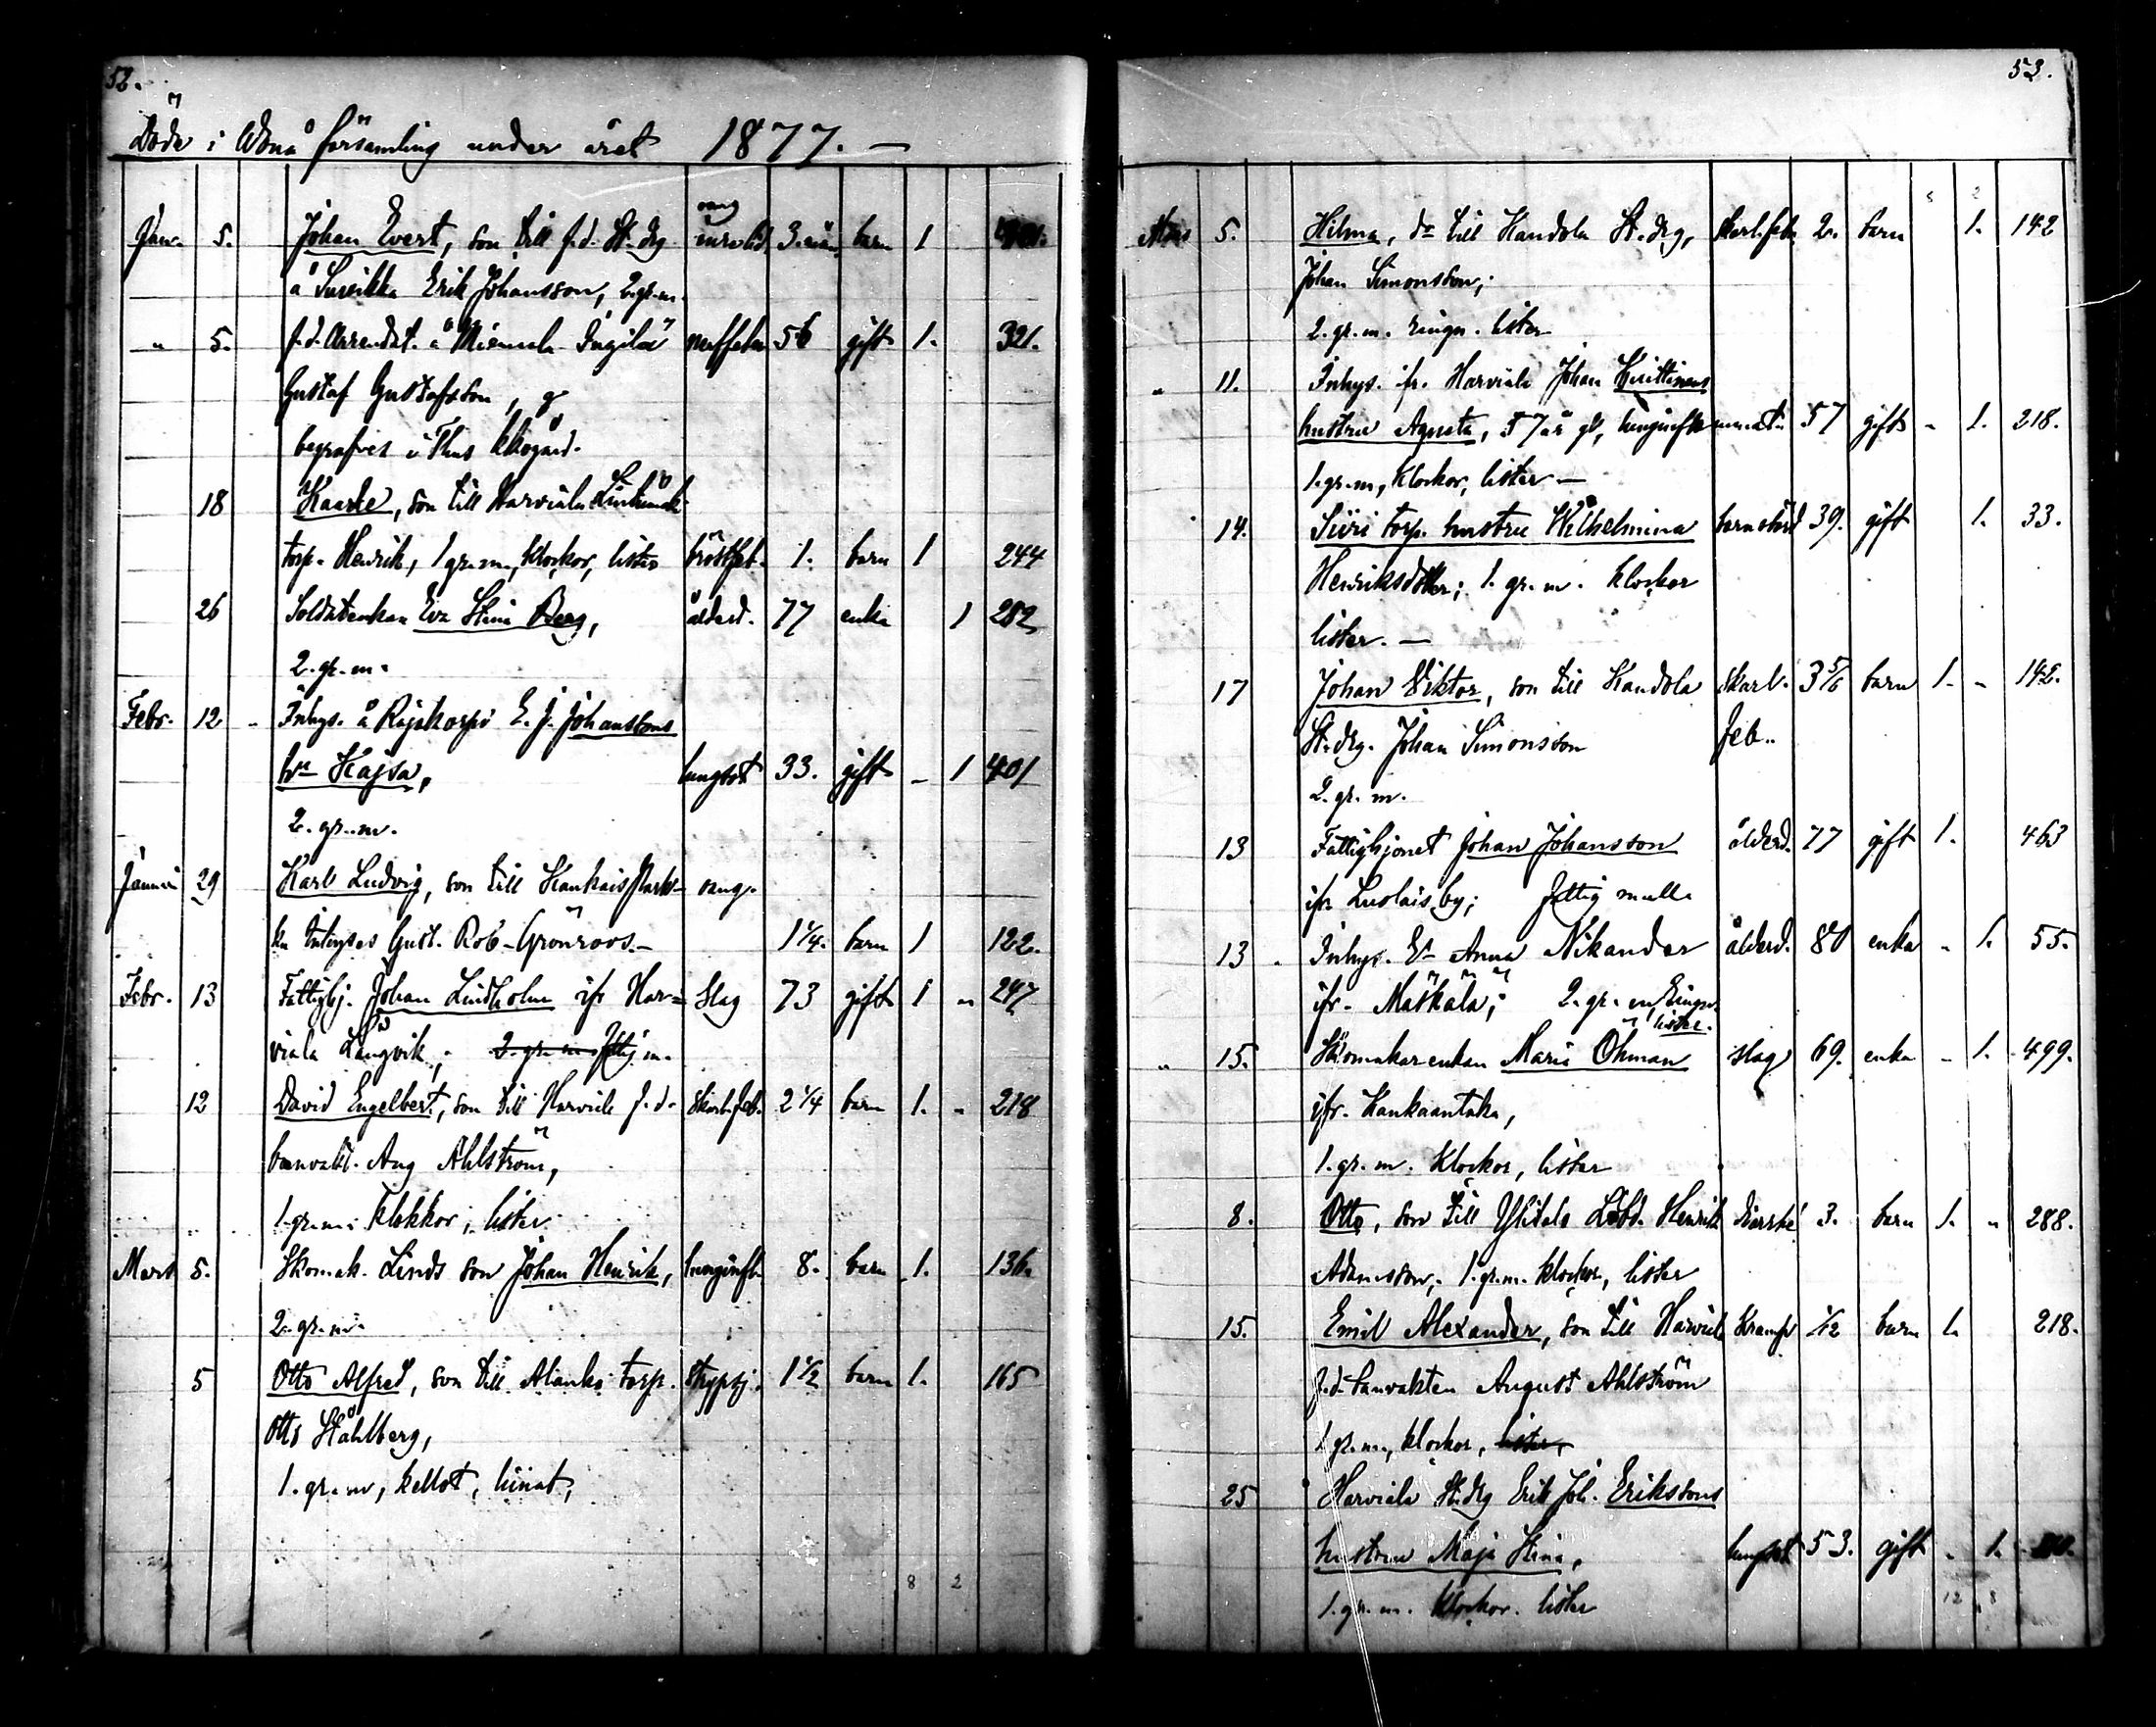 52.
Döde i Wånå församling under året 1877. —
Jan. 5. Johan Evert, son till f.d. St. drg 3. mån. barn 1
å Erik Johansson, 2. gr. m.
" 5. f.d. Arrendat. å Miemala Ingilä nerffeber 56 gift 1. 321.
Gustaf Gustafsson,
begrafves i kkogård.
18 Kaarle, son till Harviala
torp. Henrik, 1 gr. m., klockor, lister bröstfeb. 1. barn 1 244
26 Soldatenkan Eva Stina Berg, ålderd. 77 enka 1 282
2. gr. m.
Febr. 12 Inhys. å Rajakorpi E. J. Johanssons
hu Kajsa, lungsot 33. gift - 1 401
2. gr. m.
Januari 29 Karl Ludvig, son till Kankais
Inhyses Gust. Rob. Grönroos. — 1 1/4. barn 1 122.
Febr. 13 Fattighj. Johan Lindholm ifr Har= slag 73 gift 1 " 247
viala Långvik; 2. gr. m. m.
12 David Engelbert, son till Harviala f.d. Skarl. feb. 2 1/4 barn 1. " 218
banvakt. Aug Ahlström,
1 gr. m. klokkor, lister.
Mars 5. Skomak. Linds son Johan Henrik, lunginfl. 8. barn 1. 136.
2. gr. m.
5 Otto Alfred, son till Alanko torp. strypsj. 1 1/2 barn 1. 165
Otto Ståhlberg,
1. gr. m, kellot, liinat,
8 2
53.
Mars 5. Hilma, dr till Kandola St. drg, Skarl. feb. 2. barn 1. 142
Johan Simonsson;
2. gr. m. ringn. lister
" 11. Inhys. ifr. Harviala Johan
hustru Agneta, 57 år gl, 57 gift - 1. 218.
1. gr. m, klockor, lister —
14. Siiri torp. hustru Wilhelmina barnsbörd 39. gift 1. 33.
Henriksdotter; 1. gr. m. klockor
lister. —
17 Johan Viktor, son till Kandola Skarl. 3 5/6 barn 1. - 142.
St. drg. Johan Simonsson feb.
2. gr. m.
13 Fattighjonet Johan Johansson ålderd. 77 gift 1. 463
ifr Luolais by; fattig mull.
13 Inhys. E. Anna Nikander ålderd. 80 enka - 1. 55.
ifr. Mäskälä; 2. gr. m, Ringn.
lister.
" 15. Skomakarenkan Maria Öhman slag 69. enka - 1. 499.
ifr. Kankaantaka,
1. gr. m. klockor, lister
8. Otto, son till Ylitalo Henrik 3. barn 1. " 288.
Adamsson, 1. gr. m. klockor, lister
15. Emil Alexander, son till Harviala Kramp 1/12 barn 1. 218.
f.d. banvakten August Ahlström
1 gr. m, klockor, lister,
25 Harviala St. drg Erik Joh. Erikssons
hustru Maja Stina, lungsot 53. gift - 1.
1. gr. m. klockor. lister
12 8